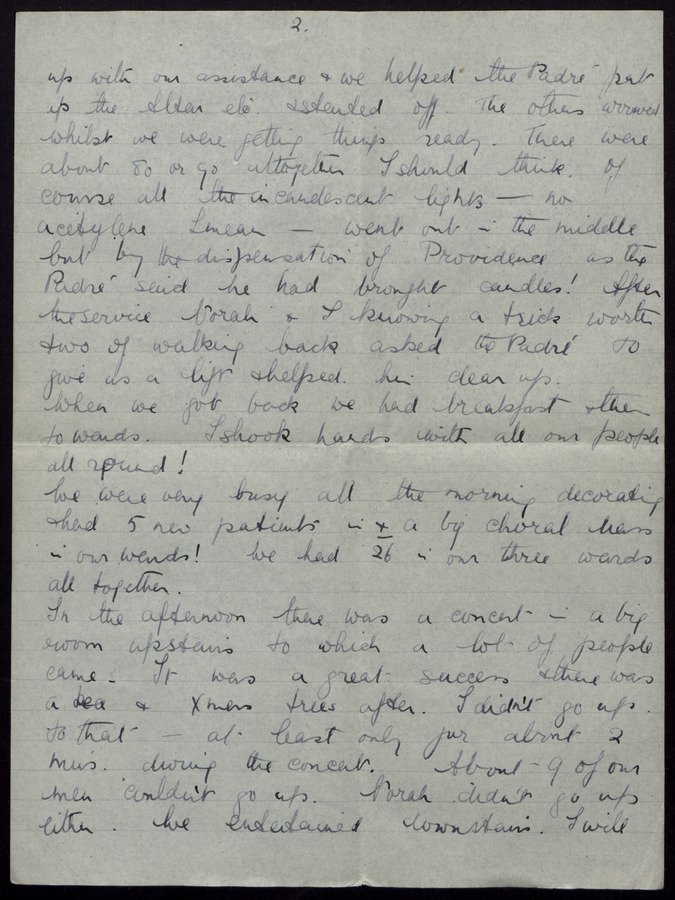 2.
up with our assistance & we helped the Padré put
up the Altar etc. & tended off. The others arrived
whilst we were getting things ready. There were
about 80 or 90 altogether I should think. Of
course all the incandescent lights — no
acetylene I mean — went out in the middle
but by the dispensation of Providence as the
Padré said he had brought candles! After
the service Norah & I knowing a trick worth
two of walking back asked the Padré to
give us a lift & helped him clear up.
When we got back we had breakfast & then
to wards. I shook hands with all our people
all round!
We were very busy all the morning decorating
& had 5 new patients in & a big choral Mass
in our wards! We had 26 in our three wards
all together.
In the afternoon there was a concert in a big
room upstairs to which a lot of people
came. It was a great success & there was
a tea & Xmas trees after. I didn't go up
to that — at least only for about 2
mins. during the concert. About 9 of our
men couldn't go up. Norah didn't go up
either. We entertained downstairs. I will